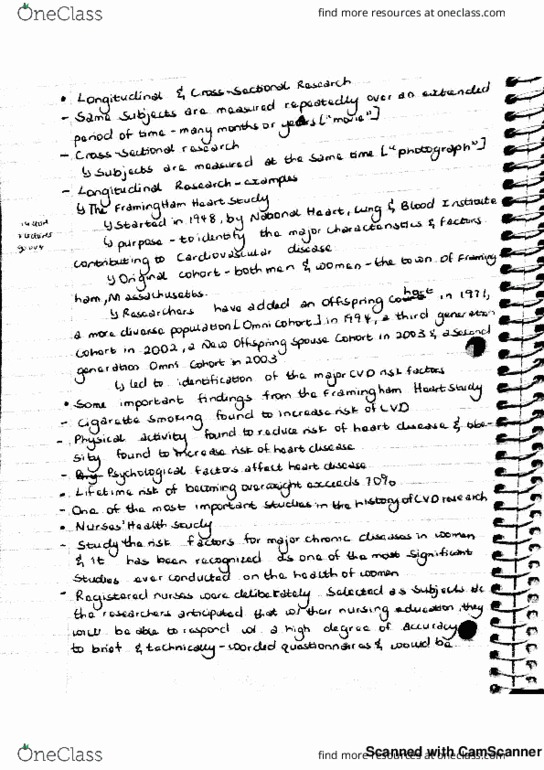 OneClass
find more resources at oneclass.com
• Longitudinal & Cross-Sectional Research
- Same subjects are measured repeatedly over an extended
period of time - many months or years ["movie"]
- Cross-sectional research
↳ Subjects are measured at the same time ["photograph"]
- Longitudinal Research - examples
↳ The Framingham Heart Study
↳ Started in 1948, by National Heart, Lung & Blood Institute
↳ purpose - to identify the major characteristics & factors
contributing to Cardiovascular disease
↳ Original cohort - both men & women - the town of Framing
ham, Massachusetts.
↳ Researchers have added an Offspring Cohort in 1971,
a more diverse population [Omni cohort] in 1994, a third generation
Cohort in 2002, a New Offspring Spouse Cohort in 2003 & a second
generation Omni Cohort in 2003
↳ led to identification of the major CVD risk factors
• Some important findings from the Framingham Heart Study
- Cigarette smoking found to increase risk of CVD
- Physical activity found to reduce risk of heart disease & obe-
sity found to increase risk of heart disease
- Psychological factors affect heart disease
• Lifetime risk of becoming overweight exceeds 70%
- One of the most important studies in the history of CVD research
• Nurses' Health Study
- Study the risk factors for major chronic diseases in women
& it has been recognized as one of the most significant
studies ever conducted on the health of women
- Registered nurses were deliberately selected as subjects
the researchers anticipated that w/ their nursing education, they
will be able to respond w/ a high degree of accuracy
to brief & technically-worded questionnaires & would be
OneClass
find more resources at oneclass.com
Scanned with CamScanner